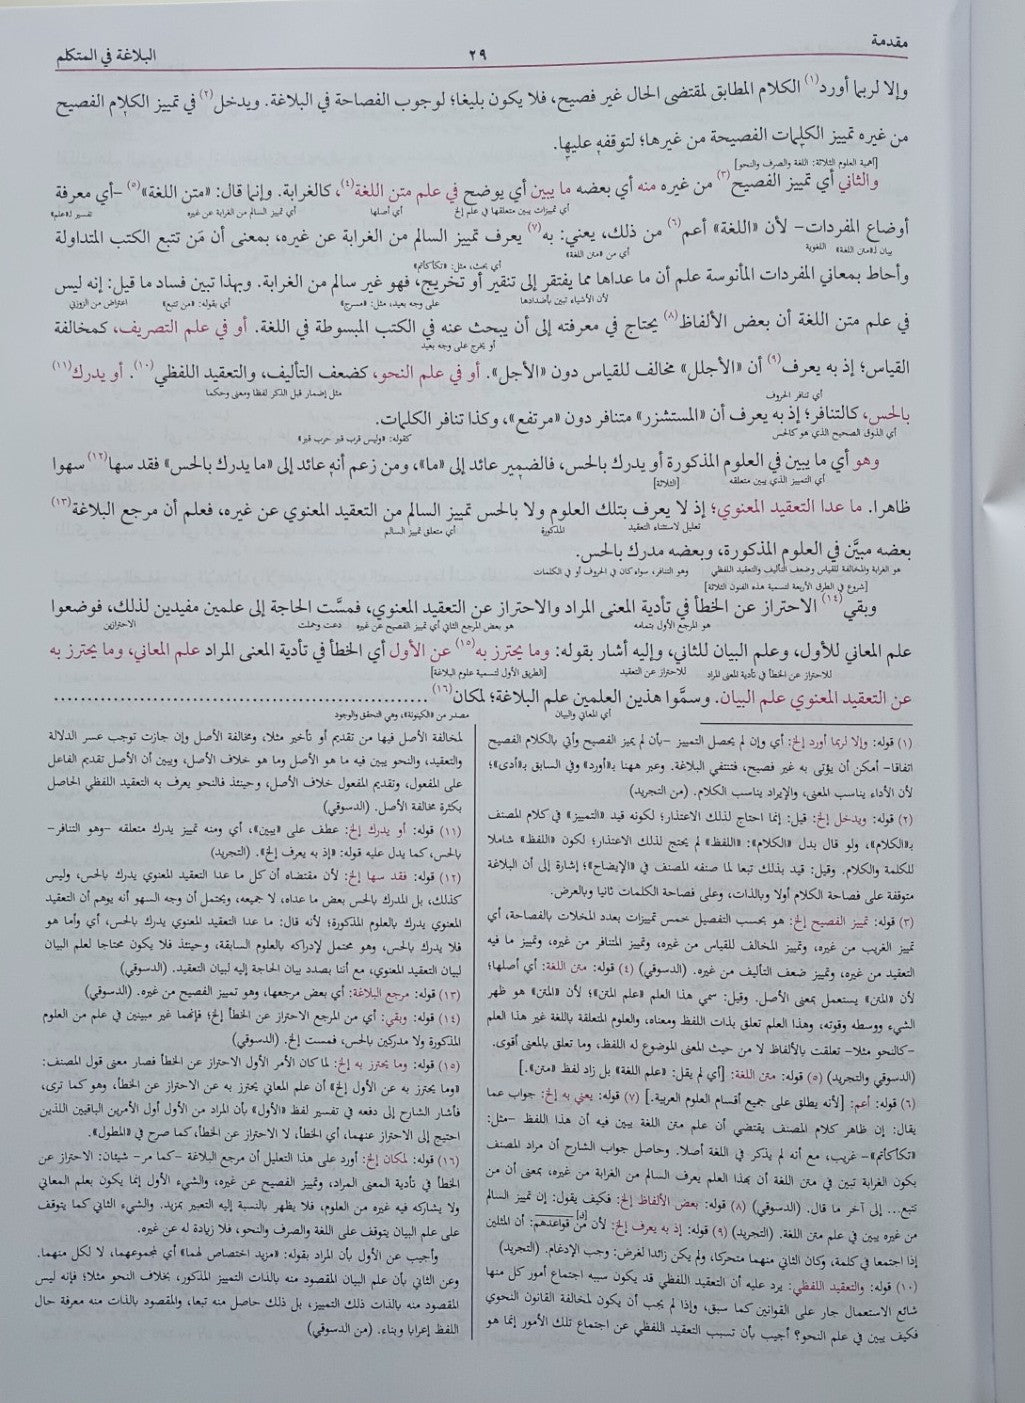 مقدمة
٢٩
البلاغة في المتكلم
وإلا لربما أورد(١) الكلام المطابق لمقتضى الحال غير فصيح، فلا يكون بليغا؛ لوجوب الفصاحة في البلاغة. ويدخل(٢) في تمييز الكلام الفصيح
من غيره تمييز الكلمات الفصيحة من غيرها؛ لتوقفه عليها.
[أهمية العلوم الثلاثة: اللغة والصرف والنحو]
والثاني أي تمييز الفصيح(٣) من غيره منه أي بعضه ما يبين أي يوضح في علم متن اللغة(٤)، كالغرابة. وإنما قال: «متن اللغة»(٥) -أي معرفة
أي تمييزات يبين متعلقها في علم إلخ أي أصلها أي تمييز السالم من الغرابة عن غيره تفسير لـ«علم»
أوضاع المفردات- لأن «اللغة» أعم(٦) من ذلك، يعني: به(٧) يعرف تمييز السالم من الغرابة عن غيره، بمعنى أن مَن تتبع الكتب المتداولة
بيان لـ«متن اللغة» اللغوية أي من «متن اللغة» أي بحث، مثل: «تكأكأتم»
وأحاط بمعاني المفردات المأنوسة علم أن ما عداها مما يفتقر إلى تنقير أو تخريج، فهو غير سالم من الغرابة. وبهذا تبين فساد ما قيل: إنه ليس
لأن الأشياء تبين بأضدادها على وجه بعيد، مثل: «مسرج» أي بقوله: «من تتبع» اعتراض من الزوزني
في علم متن اللغة أن بعض الألفاظ(٨) يحتاج في معرفته إلى أن يبحث عنه في الكتب المبسوطة في اللغة. أو في علم التصريف، كمخالفة
أو يخرج على وجه بعيد
القياس؛ إذ به يعرف(٩) أن «الأجلل» مخالف للقياس دون «الأجل». أو في علم النحو، كضعف التأليف، والتعقيد اللفظي(١٠). أو يدرك(١١)
أي تنافر الحروف مثل إضمار قبل الذكر لفظا ومعنى وحكما
بالحس، كالتنافر؛ إذ به يعرف أن «المستشزر» متنافر دون «مرتفع»، وكذا تنافر الكلمات.
أي الذوق الصحيح الذي هو كالحس كقوله: «وليس قرب قبر حرب قبر»
وهو أي ما يبين في العلوم المذكورة أو يدرك بالحس، فالضمير عائد إلى «ما»، ومن زعم أنه عائد إلى «ما يدرك بالحس» فقد سها(١٢) سهوا
أي التمييز الذي يبين متعلقه [الثلاثة]
ظاهرا. ما عدا التعقيد المعنوي؛ إذ لا يعرف بتلك العلوم ولا بالحس تمييز السالم من التعقيد المعنوي عن غيره، فعلم أن مرجع البلاغة(١٣)
تعليل لاستثناء التعقيد المذكورة أي متعلق تمييز السالم
بعضه مبيَّن في العلوم المذكورة، وبعضه مدرك بالحس.
هو الغرابة والمخالفة للقياس وضعف التأليف والتعقيد اللفظي وهو التنافر، سواء كان في الحروف أو في الكلمات
[شروع في الطرق الأربعة لتسمية هذه الفنون الثلاثة]
وبقي(١٤) الاحتراز عن الخطأ في تأدية المعنى المراد والاحتراز عن التعقيد المعنوي، فمسَّت الحاجة إلى علمين مفيدين لذلك، فوضعوا
هو المرجع الأول بتمامه هو بعض المرجع الثاني أي تمييز الفصيح عن غيره دعت وحملت الاحترازين
علم المعاني للأول، وعلم البيان للثاني، وإليه أشار بقوله: وما يحترز به(١٥) عن الأول أي الخطأ في تأدية المعنى المراد علم المعاني، وما يحترز به
للاحتراز عن الخطأ في تأدية المعنى المراد للاحتراز عن التعقيد [الطريق الأول لتسمية علوم البلاغة]
عن التعقيد المعنوي علم البيان. وسمَّوا هذين العلمين علم البلاغة؛ لمكان(١٦)......................................................
أي المعاني والبيان مصدر من «الكينونة»، وهي التحقق والوجود
(١) قوله: وإلا لربما أورد إلخ: أي وإن لم يحصل التمييز -بأن لم يميز الفصيح وأتي بالكلام الفصيح
اتفاقا- أمكن أن يؤتى به غير فصيح، فتنتفي البلاغة. وعبر ههنا بـ«أورد» وفي السابق بـ«أدى»؛
لأن الأداء يناسب المعنى، والإيراد يناسب الكلام. (من التجريد)
(٢) قوله: ويدخل إلخ: قيل: إنما احتاج لذلك الاعتذار؛ لكونه قيد «التمييز» في كلام المصنف
بـ«الكلام»، ولو قال بدل «الكلام»: «اللفظ» لم يحتج لذلك الاعتذار؛ لكون «اللفظ» شاملا
للكلمة والكلام. وقيل: قيد بذلك تبعا لما صنفه المصنف في «الإيضاح»؛ إشارة إلى أن البلاغة
متوقفة على فصاحة الكلام أولا وبالذات، وعلى فصاحة الكلمات ثانيا وبالعرض.
(٣) قوله: تمييز الفصيح إلخ: هو بحسب التفصيل خمس تمييزات بعدد المخلات بالفصاحة، أي
تمييز الغريب من غيره، وتمييز المخالف للقياس من غيره، وتمييز المتنافر من غيره، وتمييز ما فيه
التعقيد من غيره، وتمييز ضعف التأليف من غيره. (الدسوقي) (٤) قوله: متن اللغة: أي أصلها؛
لأن «المتن» يستعمل بمعنى الأصل. وقيل: سمي هذا العلم «علم المتن»؛ لأن «المتن» هو ظهر
الشيء ووسطه وقوته، وهذا العلم تعلق بذات اللفظ ومعناه، والعلوم المتعلقة باللغة غير هذا العلم
-كالنحو مثلا- تعلقت بالألفاظ لا من حيث المعنى الموضوع له اللفظ، وما تعلق بالمعنى أقوى.
(الدسوقي والتجريد) (٥) قوله: متن اللغة: [أي لم يقل: «علم اللغة» بل زاد لفظ «متن».]
(٦) قوله: أعم: [لأنه يطلق على جميع أقسام العلوم العربية.] (٧) قوله: يعني به إلخ: جواب عما
يقال: إن ظاهر كلام المصنف يقتضي أن علم متن اللغة يبين فيه أن هذا اللفظ -مثل:
«تكأكأتم»- غريب، مع أنه لم يذكر في اللغة أصلا. وحاصل جواب الشارح أن مراد المصنف
بكون الغرابة تبين في متن اللغة أن بهذا العلم يعرف السالم من الغرابة من غيره، بمعنى أن من
تتبع... إلى آخر ما قال. (الدسوقي) (٨) قوله: بعض الألفاظ إلخ: فكيف يقول: إن تمييز السالم
من غيره يبين في علم متن اللغة. (التجريد) (٩) قوله: إذ به يعرف إلخ: لأن من قواعدهم: أن المثلين
إذا اجتمعا في كلمة، وكان الثاني منهما متحركا، ولم يكن زائدا لغرض: وجب الإدغام. (التجريد)
(١٠) قوله: والتعقيد اللفظي: يرد عليه أن التعقيد اللفظي قد يكون سببه اجتماع أمور كل منها
شائع الاستعمال جار على القوانين كما سبق، وإذا لم يجب أن يكون لمخالفة القانون النحوي
فكيف يبين في علم النحو؟ أجيب بأن تسبب التعقيد اللفظي عن اجتماع تلك الأمور إنما هو
لمخالفة الأصل فيها من تقديم أو تأخير مثلا، ومخالفة الأصل وإن جازت توجب عسر الدلالة
والتعقيد، والنحو يبين فيه ما هو الأصل وما هو خلاف الأصل، ويبين أن الأصل تقديم الفاعل
على المفعول، وتقديم المفعول خلاف الأصل، وحينئذ فالنحو يعرف به التعقيد اللفظي الحاصل
بكثرة مخالفة الأصل. (الدسوقي)
(١١) قوله: أو يدرك إلخ: عطف على «يبين»، أي ومنه تمييز يدرك متعلقه -وهو التنافر-
بالحس، كما يدل عليه قوله: «إذ به يعرف إلخ». (التجريد)
(١٢) قوله: فقد سها إلخ: لأن مقتضاه أن كل ما عدا التعقيد المعنوي يدرك بالحس، وليس
كذلك، بل المدرك بالحس بعض ما عداه، لا جميعه، ويحتمل أن وجه السهو أنه يوهم أن التعقيد
المعنوي يدرك بالعلوم المذكورة؛ لأنه قال: ما عدا التعقيد المعنوي يدرك بالحس، أي وأما هو
فلا يدرك بالحس، وهو محتمل لإدراكه بالعلوم السابقة، وحينئذ فلا يكون محتاجا لعلم البيان
لبيان التعقيد المعنوي، مع أننا بصدد بيان الحاجة إليه لبيان التعقيد. (الدسوقي)
(١٣) قوله: مرجع البلاغة: أي بعض مرجعها، وهو تمييز الفصيح من غيره. (الدسوقي)
(١٤) قوله: وبقي: أي من المرجع الاحتراز عن الخطأ إلخ؛ فإنهما غير مبينين في علم من العلوم
المذكورة ولا مدركين بالحس، فمست إلخ. (الدسوقي)
(١٥) قوله: وما يحترز به إلخ: لما كان الأمر الأول الاحتراز عن الخطأ فصار معنى قول المصنف:
«وما يحترز به عن الأول إلخ» أن علم المعاني يحترز به عن الاحتراز عن الخطأ، وهو كما ترى،
فأشار الشارح إلى دفعه في تفسير لفظ «الأول» بأن المراد من الأول أول الأمرين الباقيين اللذين
احتيج إلى الاحتراز عنهما، أي الخطأ، لا الاحتراز عن الخطأ، كما صرح في «المطول».
(١٦) قوله: لمكان إلخ: أورد على هذا التعليل أن مرجع البلاغة -كما مر- شيئان: الاحتراز عن
الخطأ في تأدية المعنى المراد، وتمييز الفصيح عن غيره، والشيء الأول إنما يكون بعلم المعاني
ولا يشاركه فيه غيره من العلوم، فلا يظهر بالنسبة إليه التعبير بمزيد. والشيء الثاني كما يتوقف
على علم البيان يتوقف على اللغة والصرف والنحو، فلا زيادة له عن غيره.
وأجيب عن الأول بأن المراد بقوله: «مزيد اختصاص لهما» أي بمجموعهما، لا لكل منهما.
وعن الثاني بأن علم البيان المقصود منه بالذات التمييز المذكور، بخلاف النحو مثلا؛ فإنه ليس
المقصود منه بالذات ذلك التمييز، بل ذلك حاصل منه تبعا، والمقصود بالذات منه معرفة حال
اللفظ إعرابا وبناء. (من الدسوقي)